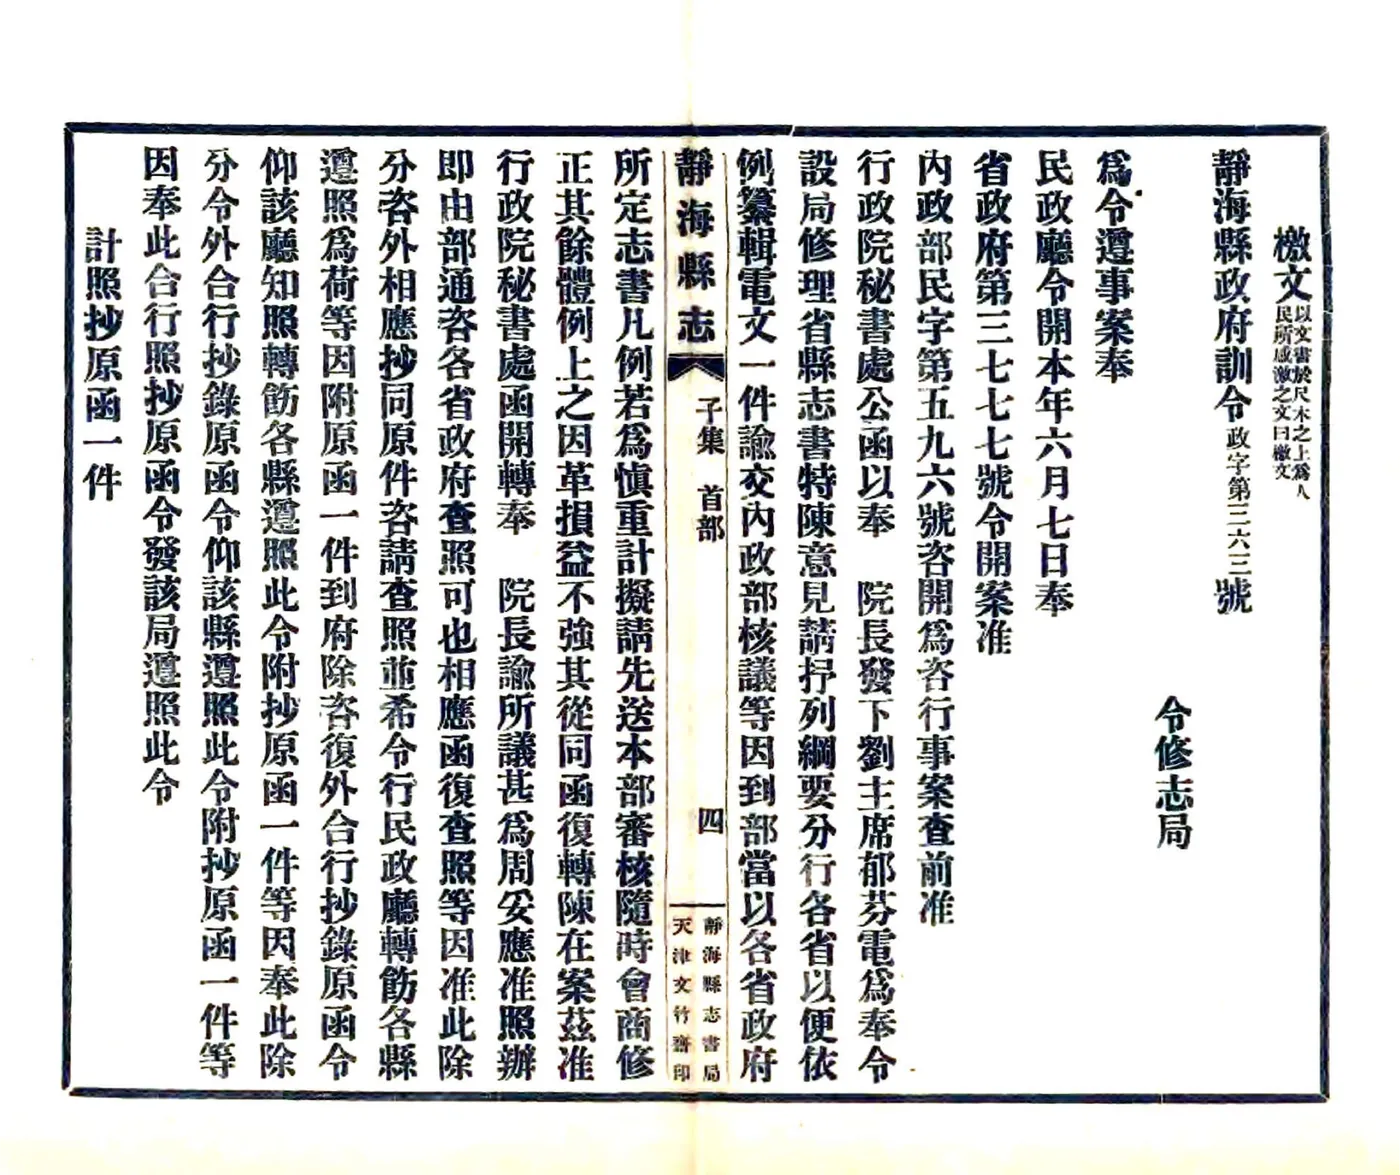 檄文以文書於尺木之上爲人
民所感激之文曰檄文
靜海縣政府訓令政字第三六三號
令修志局
爲令遵事案奉
民政廳令開本年六月七日奉
省政府第三七七七號令開案准
內政部民字第五九六號咨開爲咨行事案查前准
行政院秘書處公函以奉　院長發下劉主席郁芬電爲奉令
設局修理省縣志書特陳意見請抒列綱要分行各省以便依
例纂輯電文一件諭交內政部核議等因到部當以各省政府
靜海縣志　子集　首部　四　靜海縣志書局
天津文竹齋印
所定志書凡例若爲愼重計擬請先送本部審核隨時會商修
正其餘體例上之因革損益不強其從同函復轉陳在案茲准
行政院秘書處函開轉奉　院長諭所議甚爲周妥應准照辦
即由部通咨各省政府查照可也相應函復查照等因准此除
分咨外相應抄同原件咨請查照並希令行民政廳轉飭各縣
遵照爲荷等因附原函一件到府除咨復外合行抄錄原函令
仰該廳知照轉飭各縣遵照此令附抄原函一件等因奉此除
分令外合行抄錄原函令仰該縣遵照此令附抄原函一件等
因奉此合行照抄原函令發該局遵照此令
計照抄原函一件